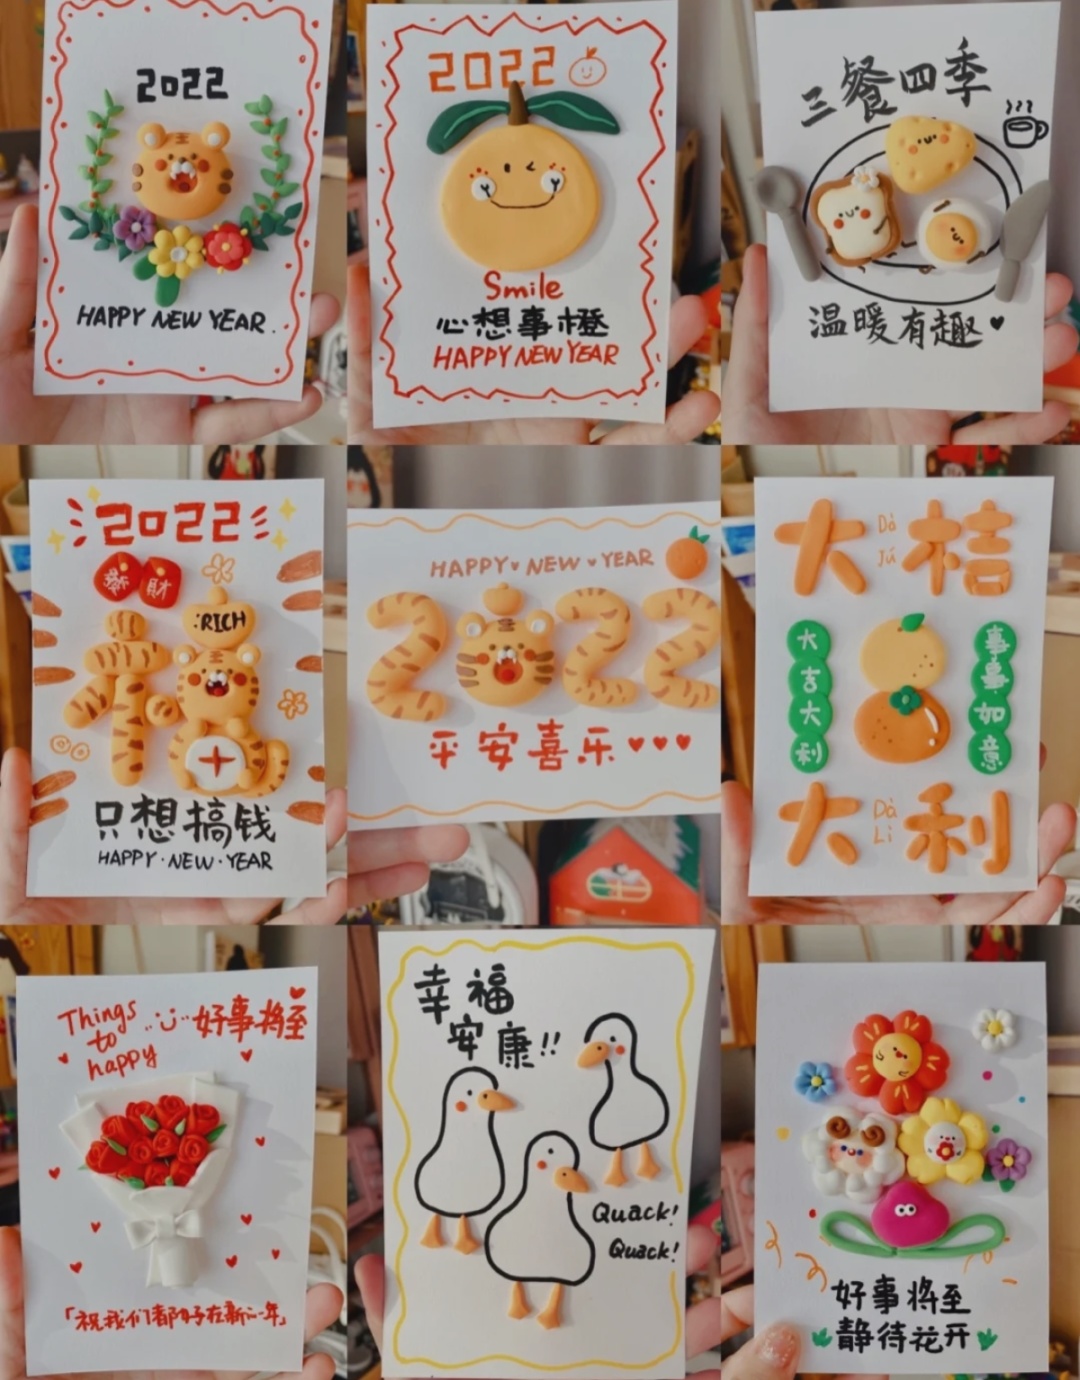 2022
HAPPY NEW YEAR.
2022
Smile
心想事橙
HAPPY NEW YEAR
三餐四季
温暖有趣
2022
發財
RICH
只想搞钱
HAPPY·NEW·YEAR
HAPPY NEW YEAR
2022
平安喜乐
大桔
Dà
Jú
大吉大利
事事如意
大利
Dà
Lì
Things
to
happy
好事将至
「祝我们都好在新的一年」
幸福
安康!!
Quack!
Quack!
好事将至
静待花开